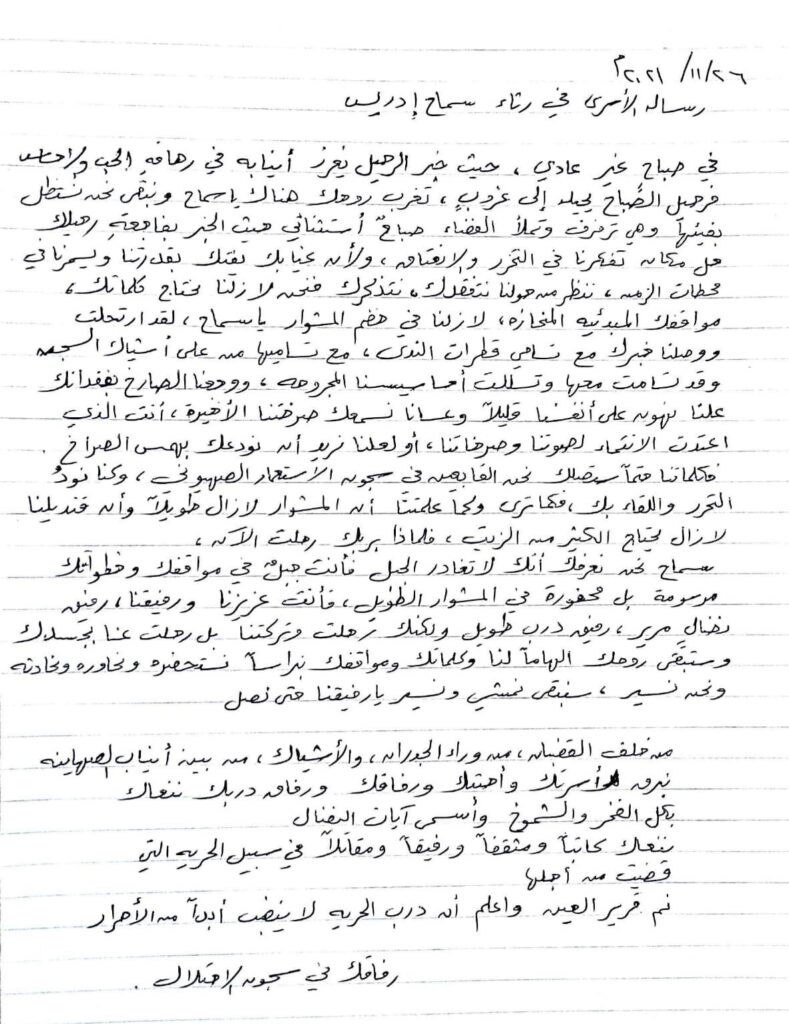 ٢٠٢١/١١/٢٦م
رسالة الأسرى في رثاء سماح إدريس
في صباح غير عادي ، حيث خبر الرحيل يغرز أنيابه في رهافة الحب والإحساس
فرحيل الصَّباح يحيله إلى غروبٍ ، تغرب روحك هناك يا سماح ونبقى نحن نستظل
بفيئها وهي ترفرف وتملأ الفضاء صباحٌ أستثنائي حيث الخبر بفاجعة رحيلك
هل مكان تفكرنا في التحرر والإنعتاق ، ولأن غيابك يفتك بقدرتنا ويسمرنا في
محطات الزمن ، ننظر من حولنا نتفقدك ، نتذكرك فنحن لا زلنا نحتاج كلماتك ،
مواقفك المبدئيه المنحازه ، لازلنا في خضم المشوار يا سماح ، لقد ارتحلت
ووصلنا خبرك مع تسامي قطرات الندى ، مع تساميها من على أشياك السجن
وقد تسامت معها وتسللت أحاسيسنا المجروحه ، ووجعنا الصارخ بفقدانك
علنا نهون على أنفسنا قليلاً وعسانا نسمعك صرختنا الأخيرة ، أنت الذي
اعتدت الانتماء لصوتنا وصرخاتنا ، أو لعلنا نريد أن نودعك بهمس الصراخ .
فكلماتنا حتماً ستصلك نحن القابعين في سجون الأستعمار الصهيوني ، وكنا نودُ
التحرر واللقاء بك ، فكما ترى وكما علمتنا أن المشوار لازال طويلاً وأن قنديلنا
لازال يحتاج الكثير من الزيت ، فلماذا بربك رحلت الآن ،
سماح نحن نعرفك أنك لا تغادر الجبل فأنت جبلٌ في مواقفك وخطواتك
مرسومة بل محفورة في المشوار الطويل ، فأنت عزيزنا ورفيقنا ، رفيق
نضال مرير ، رفيق درب طويل ولكنك ترحلت وتركتنا بل رحلت عنا بجسدك
وستبقى روحك الهاماً لنا وكلماتك ومواقفك نبراساً نستحضره ونحاوره ونحادثه
ونحن نسير ، سنبقى نمشي ونسير يا رفيقنا حتى نصل
من خلف القضبان ، من وراء الجدران ، والأشياك ، من بين أنياب الصهاينه
نبرق لأسرتك وأحبتك ورفاقك ورفاق دربك ننعاك
بكل الفخر والشموخ وأسمى آيات النضال
ننعاك كاتباً ومثقفاً ورفيقاً ومقاتلاً في سبيل الحريه التي
قضيت من أجلها
نم قرير العين واعلم أن درب الحريه لا ينضب أبداً من الأحرار
رفاقك في سجون الاحتلال .